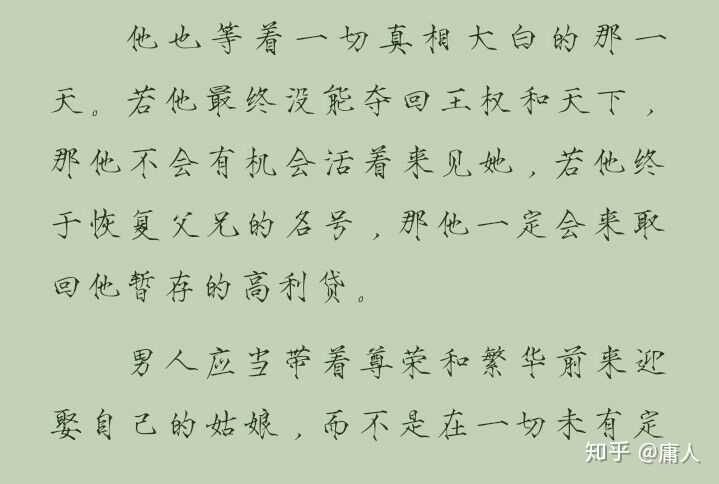 他也等着一切真相大白的那一
天。若他最终没能夺回王权和天下，
那他不会有机会活着来见她，若他终
于恢复父兄的名号，那他一定会来取
回他暂存的高利贷。
男人应当带着尊荣和繁华前来迎
娶自己的姑娘，而不是在一切未有定
知乎 @庸人